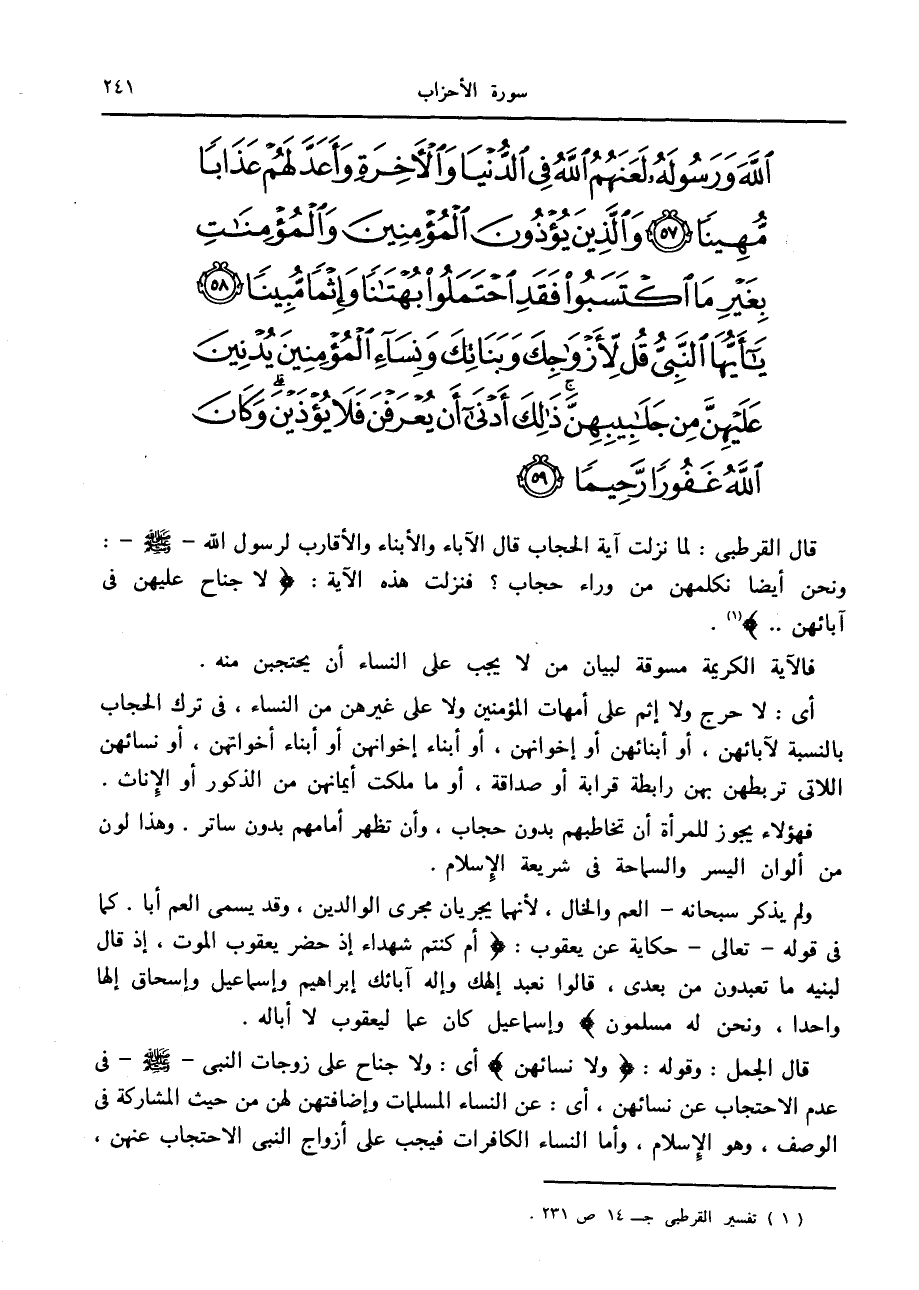 سورة الأحزاب ٢٤١
ٱللَّهَ وَرَسُولَهُۥ لَعَنَهُمُ ٱللَّهُ فِى ٱلدُّنْيَا وَٱلْأَخِرَةِ وَأَعَدَّ لَهُمْ عَذَابًا
مُّهِينًا ٥٧ وَٱلَّذِينَ يُؤْذُونَ ٱلْمُؤْمِنِينَ وَٱلْمُؤْمِنَٰتِ
بِغَيْرِ مَا ٱكْتَسَبُوا۟ فَقَدِ ٱحْتَمَلُوا۟ بُهْتَٰنًا وَإِثْمًا مُّبِينًا ٥٨
يَٰٓأَيُّهَا ٱلنَّبِىُّ قُل لِّأَزْوَٰجِكَ وَبَنَاتِكَ وَنِسَآءِ ٱلْمُؤْمِنِينَ يُدْنِينَ
عَلَيْهِنَّ مِن جَلَٰبِيبِهِنَّ ۚ ذَٰلِكَ أَدْنَىٰٓ أَن يُعْرَفْنَ فَلَا يُؤْذَيْنَ ۗ وَكَانَ
ٱللَّهُ غَفُورًا رَّحِيمًا ٥٩
قال القرطبى : لما نزلت آية الحجاب قال الآباء والأبناء والأقارب لرسول الله - ﷺ - :
ونحن أيضا نكلمهن من وراء حجاب ؟ فنزلت هذه الآية : ﴿ لا جناح عليهن فى
آبائهن .. ﴾(١) .
فالآية الكريمة مسوقة لبيان من لا يجب على النساء أن يحتجبن منه .
أى : لا حرج ولا إثم على أمهات المؤمنين ولا على غيرهن من النساء ، فى ترك الحجاب
بالنسبة لآبائهن ، أو أبنائهن أو إخوانهن ، أو أبناء إخوانهن أو أبناء أخواتهن ، أو نسائهن
اللاتى تربطهن بهن رابطة قرابة أو صداقة ، أو ما ملكت أيمانهن من الذكور أو الإناث .
فهؤلاء يجوز للمرأة أن تخاطبهم بدون حجاب ، وأن تظهر أمامهم بدون ساتر . وهذا لون
من ألوان اليسر والسماحة فى شريعة الإسلام .
ولم يذكر سبحانه - العم والخال ، لأنهما يجريان مجرى الوالدين ، وقد يسمى العم أبا . كما
فى قوله - تعالى - حكاية عن يعقوب : ﴿ أم كنتم شهداء إذ حضر يعقوب الموت ، إذ قال
لبنيه ما تعبدون من بعدى ، قالوا نعبد إلهك وإله آبائك إبراهيم وإسماعيل وإسحاق إلها
واحدا ، ونحن له مسلمون ﴾ وإسماعيل كان عما ليعقوب لا أباله .
قال الجمل : وقوله : ﴿ ولا نسائهن ﴾ أى : ولا جناح على زوجات النبى - ﷺ - فى
عدم الاحتجاب عن نسائهن ، أى : عن النساء المسلمات وإضافتهن لهن من حيث المشاركة فى
الوصف ، وهو الإسلام ، وأما النساء الكافرات فيجب على أزواج النبى الاحتجاب عنهن ،
( ١ ) تفسير القرطبى جـ ١٤ ص ٢٣١ .